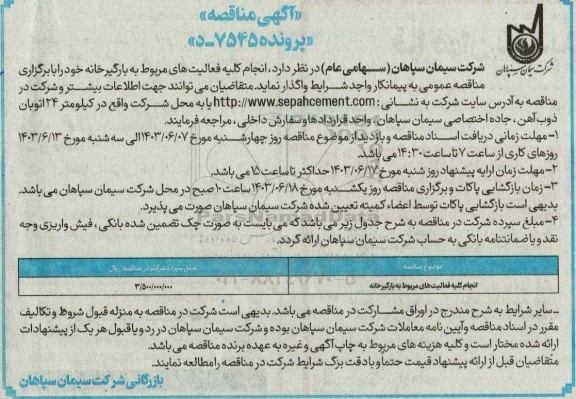 «آگهی مناقصه»
«پرونده ۷۵۴۵-د»
شرکت سیمان سپاهان
شرکت سیمان سپاهان (سهامی عام) در نظر دارد، انجام کلیه فعالیت های مربوط به بارگیرخانه خود را با برگزاری
مناقصه عمومی به پیمانکار واجد شرایط واگذار نماید. متقاضیان می توانند جهت اطلاعات بیشتر و شرکت در
مناقصه به آدرس سایت شرکت به نشانی: http://www.sepahcement.com یا به محل شرکت واقع در کیلومتر ۲۴ اتوبان
ذوب آهن، جاده اختصاصی سیمان سپاهان، واحد قراردادها و سفارش داخلی، مراجعه فرمایند.
۱- مهلت زمانی دریافت اسناد مناقصه و بازدید از موضوع مناقصه روز چهارشنبه مورخ ۱۴۰۳/۰۶/۰۷ الی سه شنبه مورخ ۱۴۰۳/۶/۱۳
روزهای کاری از ساعت ۷ تا ساعت ۱۴:۳۰ می باشد.
۲- مهلت زمان ارایه پیشنهاد روز شنبه مورخ ۱۴۰۳/۰۶/۱۷ حداکثر تا ساعت ۱۵ می باشد.
۳- زمان بازگشایی پاکات و برگزاری مناقصه روز یکشنبه مورخ ۱۴۰۳/۰۶/۱۸ ساعت ۱۰ صبح در محل شرکت سیمان سپاهان می باشد.
بدیهی است بازگشایی پاکات توسط اعضاء کمیته تعیین شده شرکت سیمان سپاهان صورت می پذیرد.
۴- مبلغ سپرده شرکت در مناقصه به شرح جدول زیر می باشد که می بایست به صورت چک تضمین شده بانکی، فیش واریزی وجه
نقد و یا ضمانتنامه بانکی به حساب شرکت سیمان سپاهان ارائه گردد.
موضوع مناقصه مبلغ سپرده شرکت در مناقصه/ ریال
انجام کلیه فعالیت های مربوط به بارگیرخانه ۳/۵۰۰/۰۰۰/۰۰۰
ـ سایر شرایط به شرح مندرج در اوراق مشارکت در مناقصه می باشد. بدیهی است شرکت در مناقصه به منزله قبول شروط و تکالیف
مقرر در اسناد مناقصه و آیین نامه معاملات شرکت سیمان سپاهان بوده و شرکت سیمان سپاهان در رد و یا قبول هر یک از پیشنهادات
ارائه شده مختار است و کلیه هزینه های مربوط به چاپ آگهی و غیره به عهده برنده مناقصه می باشد.
متقاضیان قبل از ارائه پیشنهاد قیمت حتما و با دقت برگ شرایط شرکت در مناقصه را مطالعه نمایند.
بازرگانی شرکت سیمان سپاهان